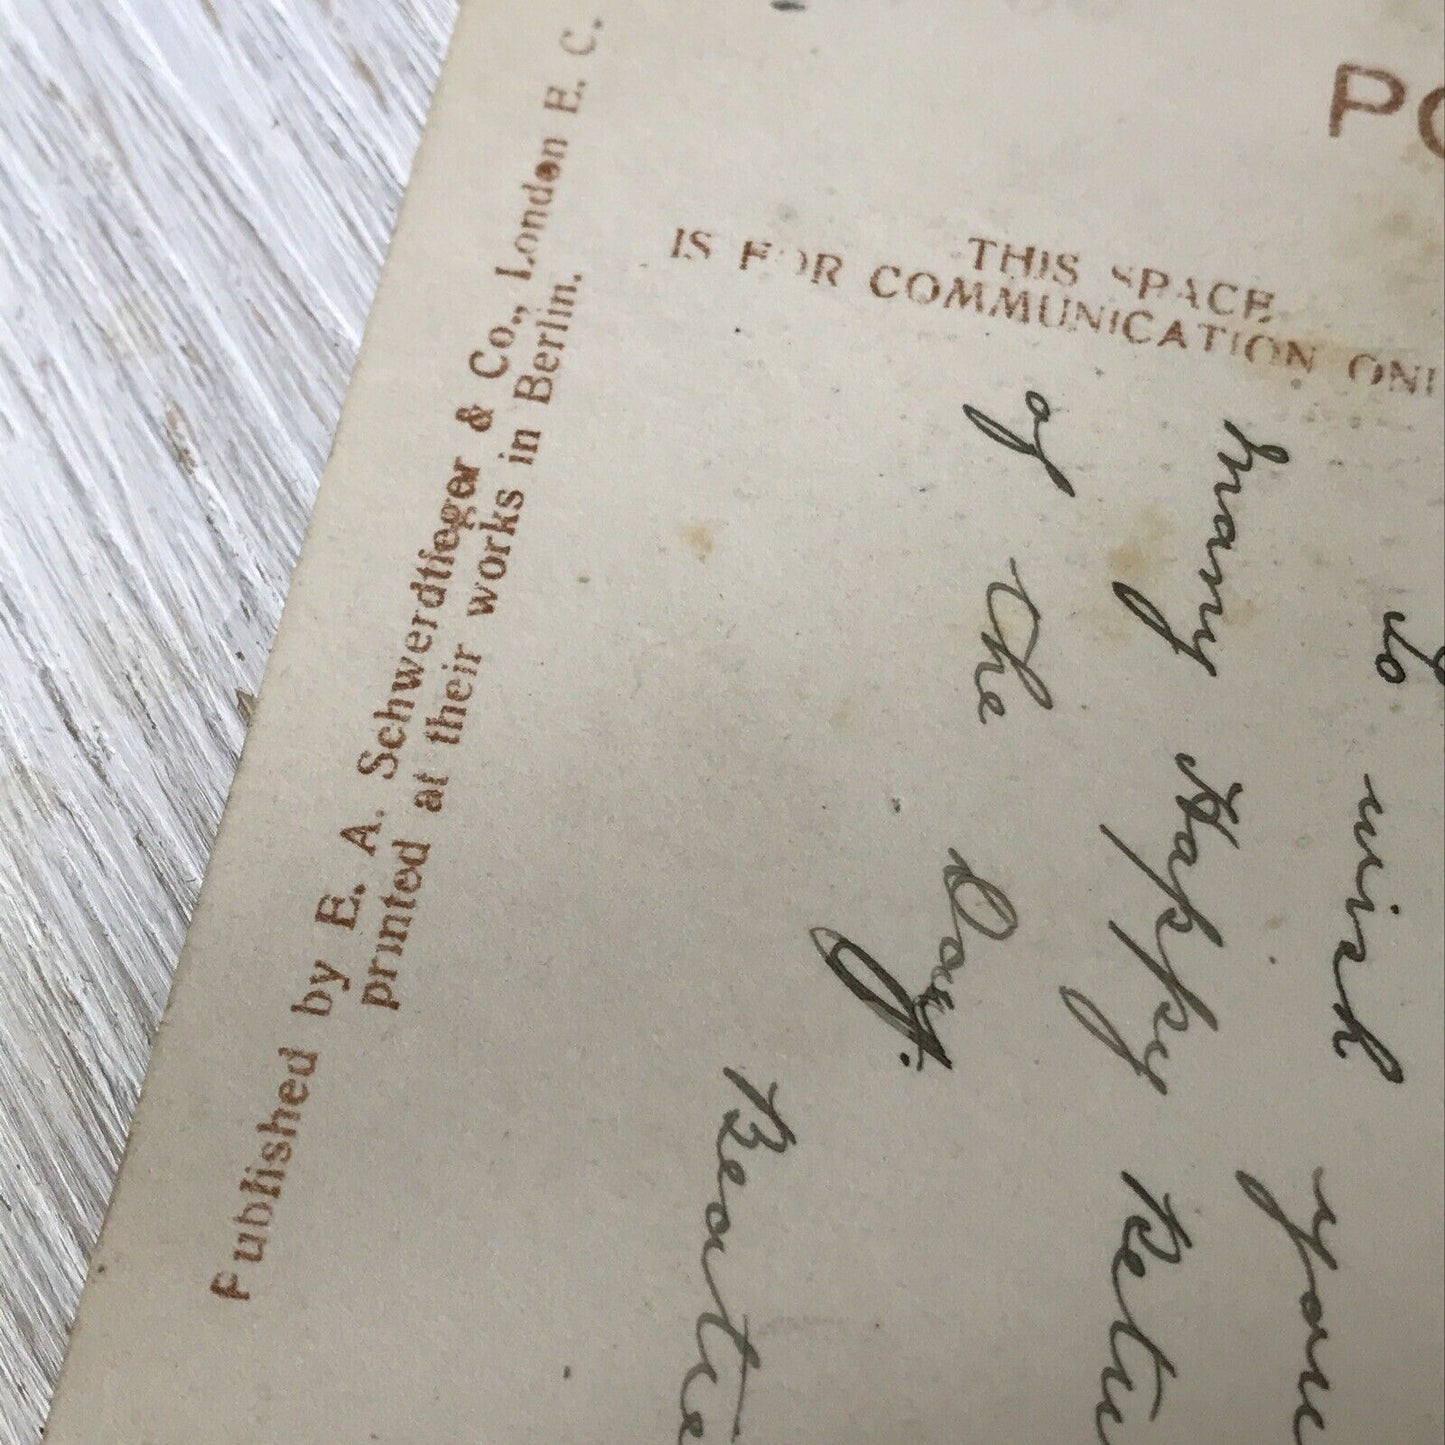 Published by E. A. Schwerdtfeger & Co., London E. C.
printed at their works in Berlin.
PO
THIS SPACE
IS FOR COMMUNICATION ONL
to wish you
many Happy Retu
of the Day.
Beatie